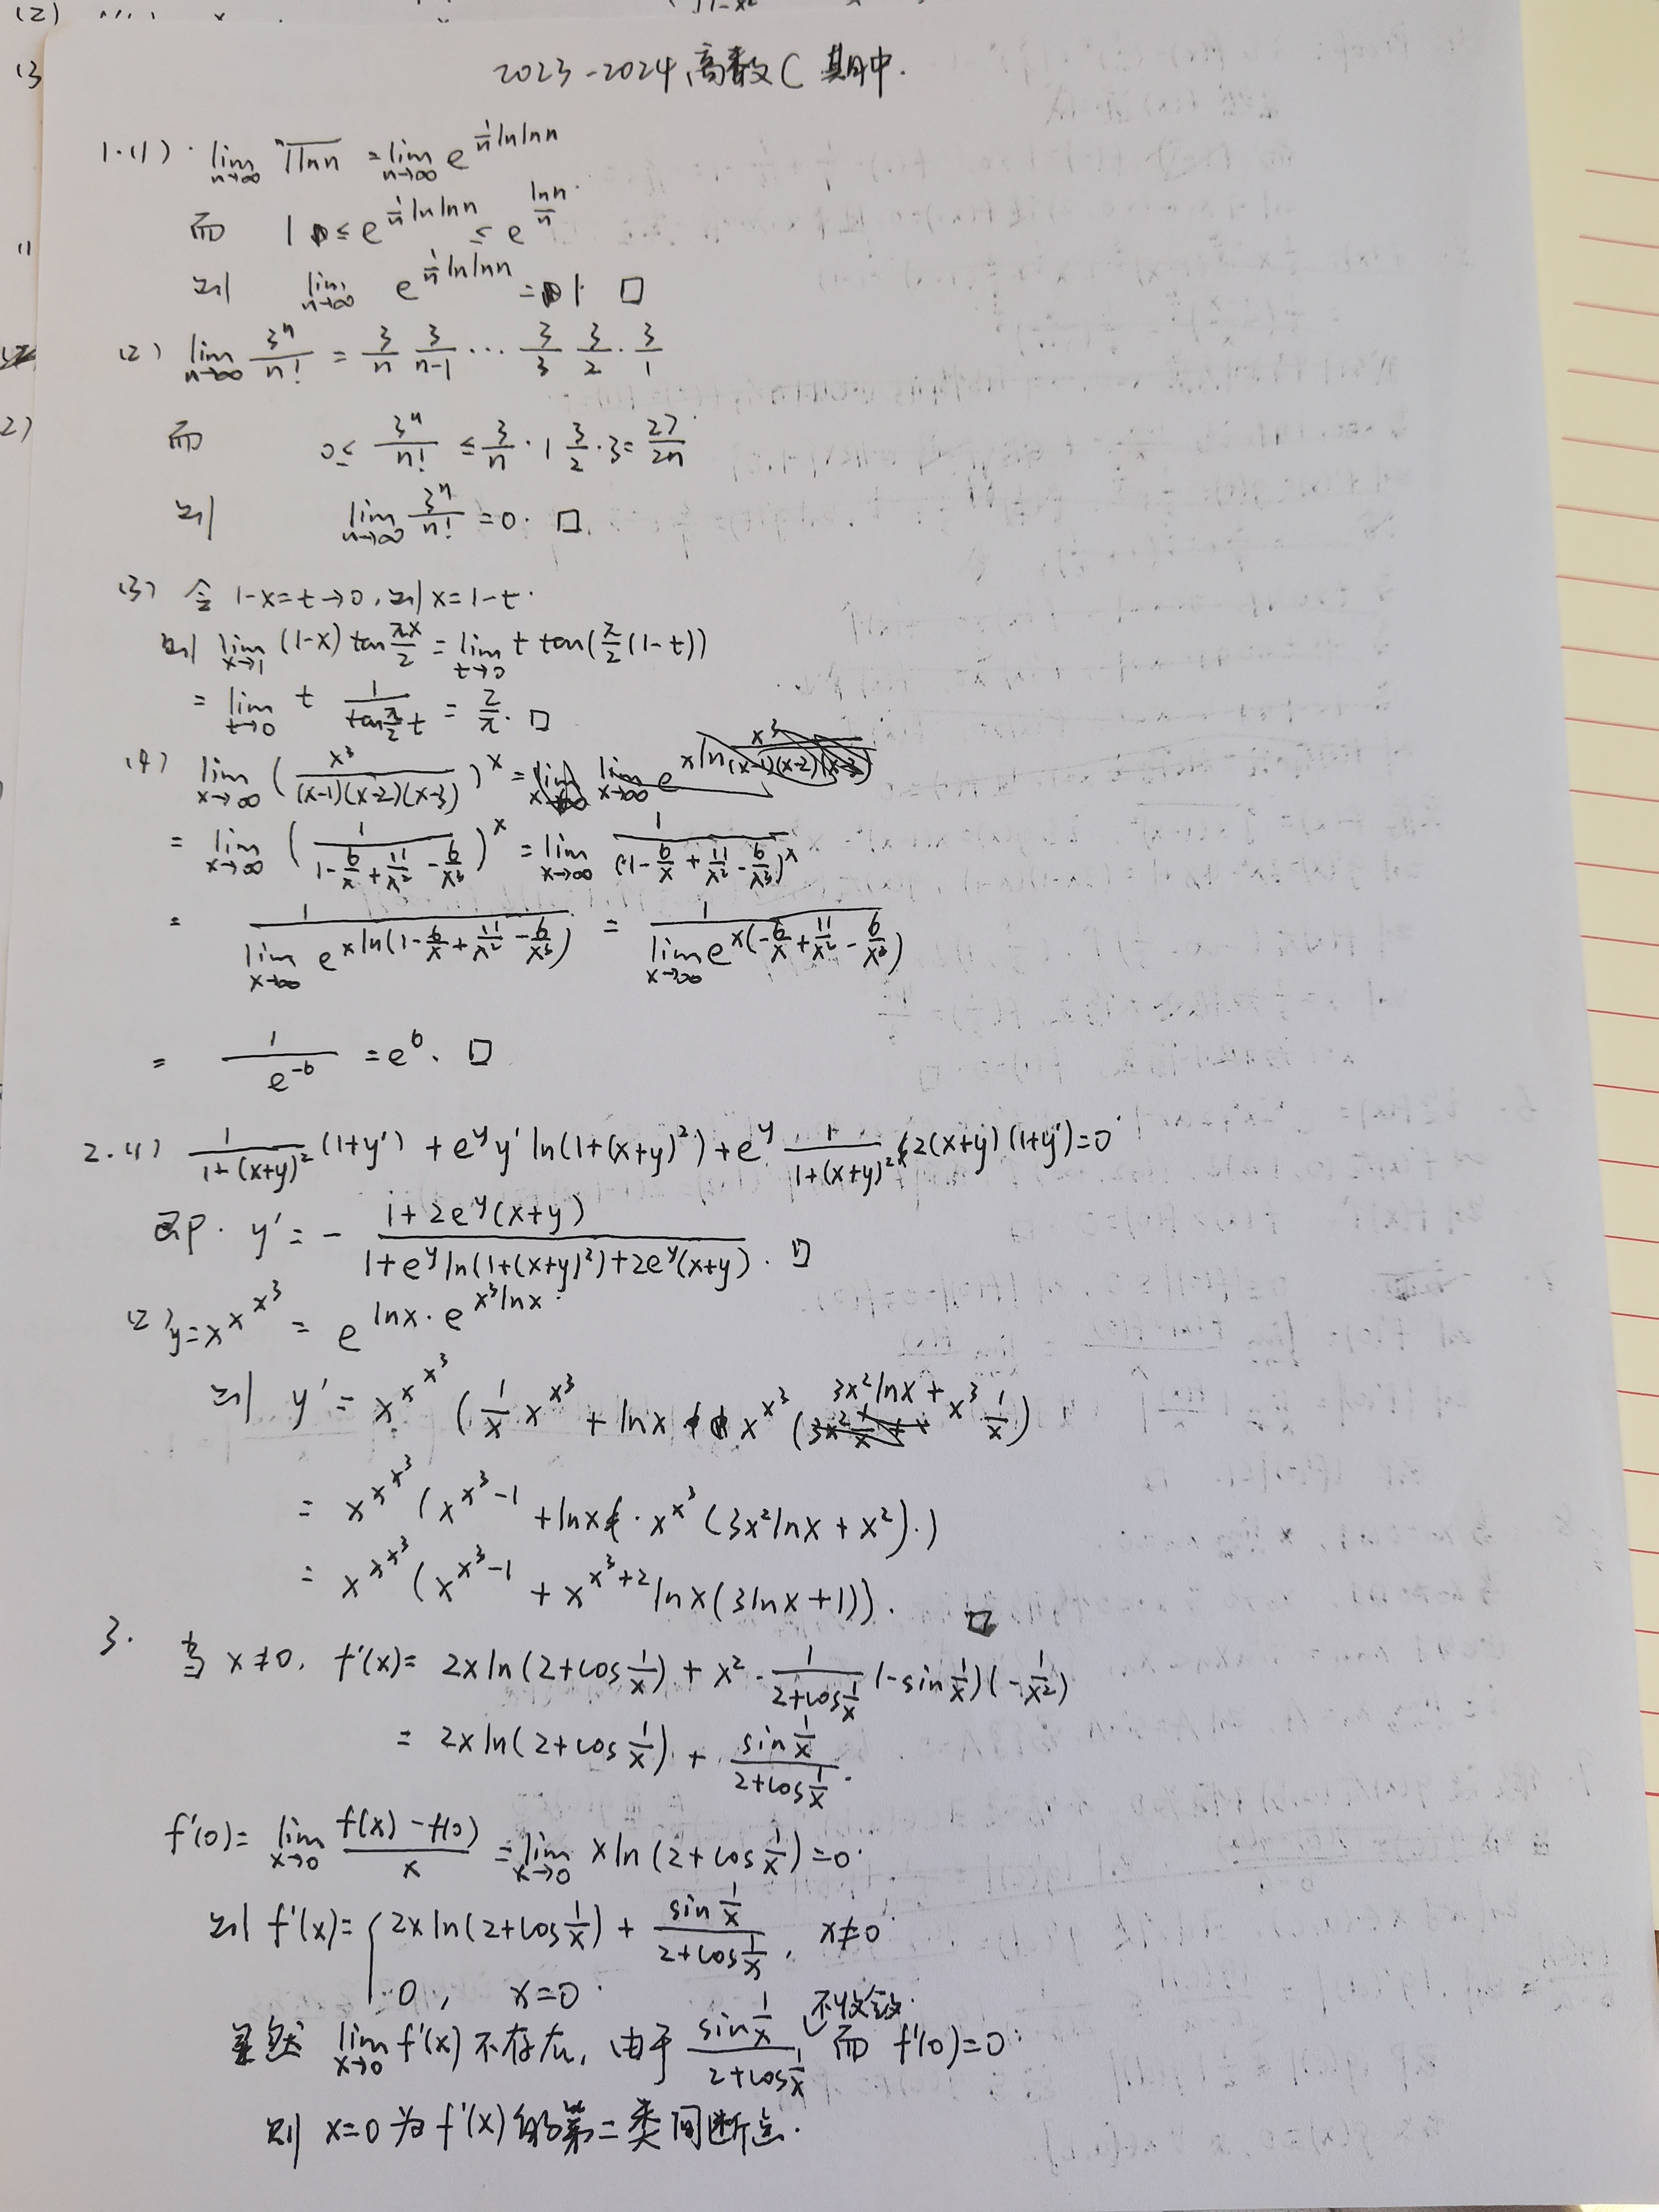 2023-2024 高数C 期中.
1.(1). lim_{n→∞} ⁿ√(ln n) = lim_{n→∞} e^{(1/n) ln ln n}
而 1 ≤ e^{(1/n) ln ln n} ≤ e^{(ln n)/n}.
则 lim_{n→∞} e^{(1/n) ln ln n} = 1. □
(2) lim_{n→∞} 3ⁿ/n! = 3/n · 3/(n-1) ··· 3/3 · 3/2 · 3/1
而 0 ≤ 3ⁿ/n! ≤ 3/n · 1 · 3/2 · 3 = 27/(2n).
则 lim_{n→∞} 3ⁿ/n! = 0. □
(3) 令 1-x=t→0, 则 x=1-t.
则 lim_{x→1} (1-x) tan(πx/2) = lim_{t→0} t tan(π/2 (1-t))
= lim_{t→0} t · 1/(tan (π/2) t) = 2/π. □
(4) lim_{x→∞} (x³/((x-1)(x-2)(x-3)))^x =
= lim_{x→∞} (1/(1 - 6/x + 11/x² - 6/x³))^x = lim_{x→∞} 1/(1 - 6/x + 11/x² - 6/x³)^x
= 1/(lim_{x→∞} e^{x ln(1 - 6/x + 11/x² - 6/x³)}) = 1/(lim_{x→∞} e^{x(-6/x + 11/x² - 6/x³)})
= 1/e^{-6} = e⁶. □
2.(1) 1/(1+(x+y)²) (1+y') + e^y y' ln(1+(x+y)²) + e^y · 1/(1+(x+y)²) · 2(x+y)(1+y') = 0.
即. y' = - (1+2e^y(x+y))/(1+e^y ln(1+(x+y)²)+2e^y(x+y)). □
(2) y = x^{x^{x³}} = e^{ln x · e^{x³ ln x}}.
则 y' = x^{x^{x³}} (1/x · x^{x³} + ln x x^{x³} (3x² ln x + x³ 1/x)
= x^{x^{x³}} (x^{x³-1} + ln x · x^{x³} (3x² ln x + x²).)
= x^{x^{x³}} (x^{x³-1} + x^{x³+2} ln x (3 ln x + 1)). □
3. 当 x≠0, f'(x) = 2x ln(2+cos 1/x) + x² · 1/(2+cos 1/x) (-sin 1/x)(-1/x²)
= 2x ln(2+cos 1/x) + (sin 1/x)/(2+cos 1/x).
f'(0) = lim_{x→0} (f(x)-f(0))/x = lim_{x→0} x ln(2+cos 1/x) = 0.
则 f'(x) = { 2x ln(2+cos 1/x) + (sin 1/x)/(2+cos 1/x), x≠0.
0, x=0.
显然 lim_{x→0} f'(x) 不存在, 由于 (sin 1/x)/(2+cos 1/x) 不收敛. 而 f'(0)=0.
则 x=0 为 f'(x) 的第二类间断点.